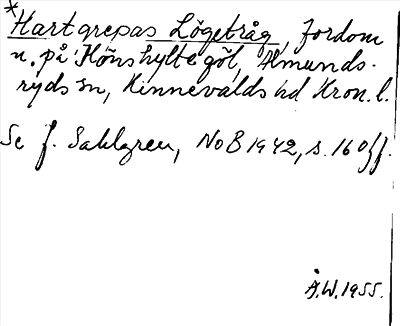 *Hartgrepas Lögetråg, fordom
n. på Hönshyltegöl, Almunds-
ryds sn, Kinnevalds hd Kron. l.
Se J. Sahlgren, NoB 1942, s. 16 off.
Å.W. 1955.